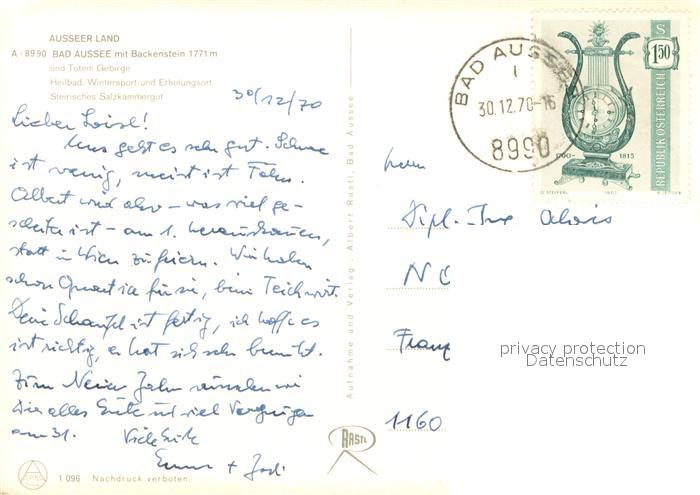 AUSSEER LAND
A - 8990 BAD AUSSEE mit Backenstein 1771 m
und Totem Gebirge
Heilbad, Wintersport- und Erholungsort
Steirisches Salzkammergut
30/12/70
Lieber Loisl!
Uns geht es sehr gut. Schnee
ist wenig, meist ist Föhn.
Albert wird also – was viel ge-
scheiter ist – am 1. herauskommen,
statt in Wien zu feiern. Wir haben
schon Quartier für sie, beim Teichwirt.
Deine Schaufel ist fertig, ich hoffe es
ist richtig, er hat sich sehr bemüht.
Zum Neuen Jahr wünschen wir
Dir alles Gute und viel Vergnügen
am 31. Viele Grüße
+
1 096 Nachdruck verboten
Aufnahme und Verlag: Albert Rastl, Bad Aussee
RASTL
BAD AUSSEE
1
30.12.70-16
8990
S
1.50
REPUBLIK ÖSTERREICH
1790-1815
1970
Herrn
Dipl.-Ing Alois
N
Franz
1160
privacy protection
Datenschutz